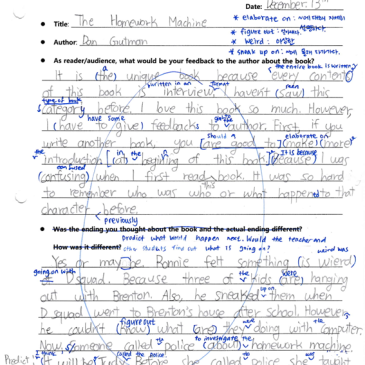 Date: December 13th
* elaborate on : ~에 대해서 자세히
• Title: The Homework Machine
* figure out :
* weird : 이상한
• Author: Dan Gutman
* sneak up on : ~에 몰래 다가가다
• As reader/audience, what would be your feedback to the author about the book?
the entire book is written
It is (the) a unique book because every content
written in an format seen
of this book is interview. I haven't (saw) this
type of book
category before. I love this book so much. However,
have some
I (have to give) feedbacks to author. First, if you
should
write another book, you (are good to) (make) (more) elaborate on
the in the It is because
introduction (at) begining of this book. (Because) I was
confused this
(confusing) when I first read book. It was so hard
to remember who was who or what happened to that
character before.
previously
• Was the ending you thought about the book and the actual ending different?
predict what would happen next. Would the teacher and
How was it different? other students find out what is going on?
weird was
Yes or maybe. Ronnie felt something (is wierd)
going on with the were
D squad. Because three of kids (are) hanging
up on
out with Brenton. Also, he sneaked them when
D squad went to Brenton's house after school. However,
figure out were the
he couldn't (know) what (are) they doing with computer.
the to investigate the
Now, someone called police (about) homework machine.
Predict: I think called the police the was
it will be Judy. Before she called police she taught